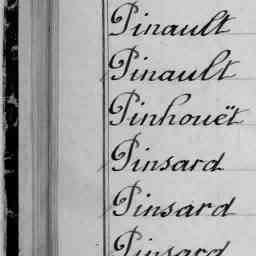 Pinault
Pinault
Pinhouët
Pinsard
Pinsard
Pinsard